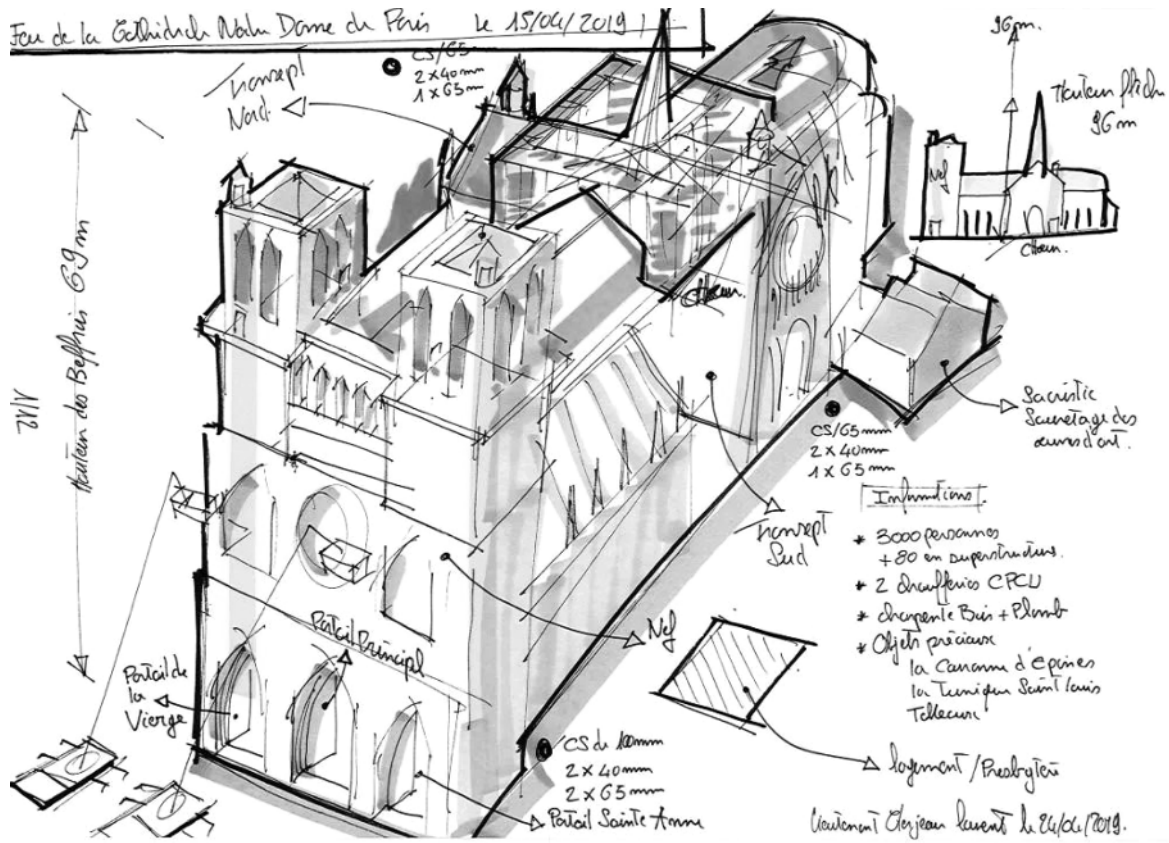 Feu de la Cathédrale Notre Dame de Paris le 15/04/2019
CS/65
2 x 40mm
1 x 65mm
Transept
Nord
96 m.
Hauteur flèche
96 m
Nef
Chœur.
Hauteur des Beffrois 69 m
Chœur.
Sacristie
Sauvetage des
œuvres d'art.
CS/65mm
2 x 40mm
1 x 65mm
Transept
Sud
Informations
* 3000 personnes
+80 en superstructure.
* 2 chaufferies CPCU
* charpente Bois + Plomb
* Objets précieux
la Couronne d'épines
la Tunique Saint Louis
Tableaux
Nef
Portail Principal
Portail de
la
Vierge
CS de 100mm
2 x 40mm
2 x 65mm
Portail Sainte Anne
logement / Presbytère
Lieutenant Laurent le 24/04/2019.